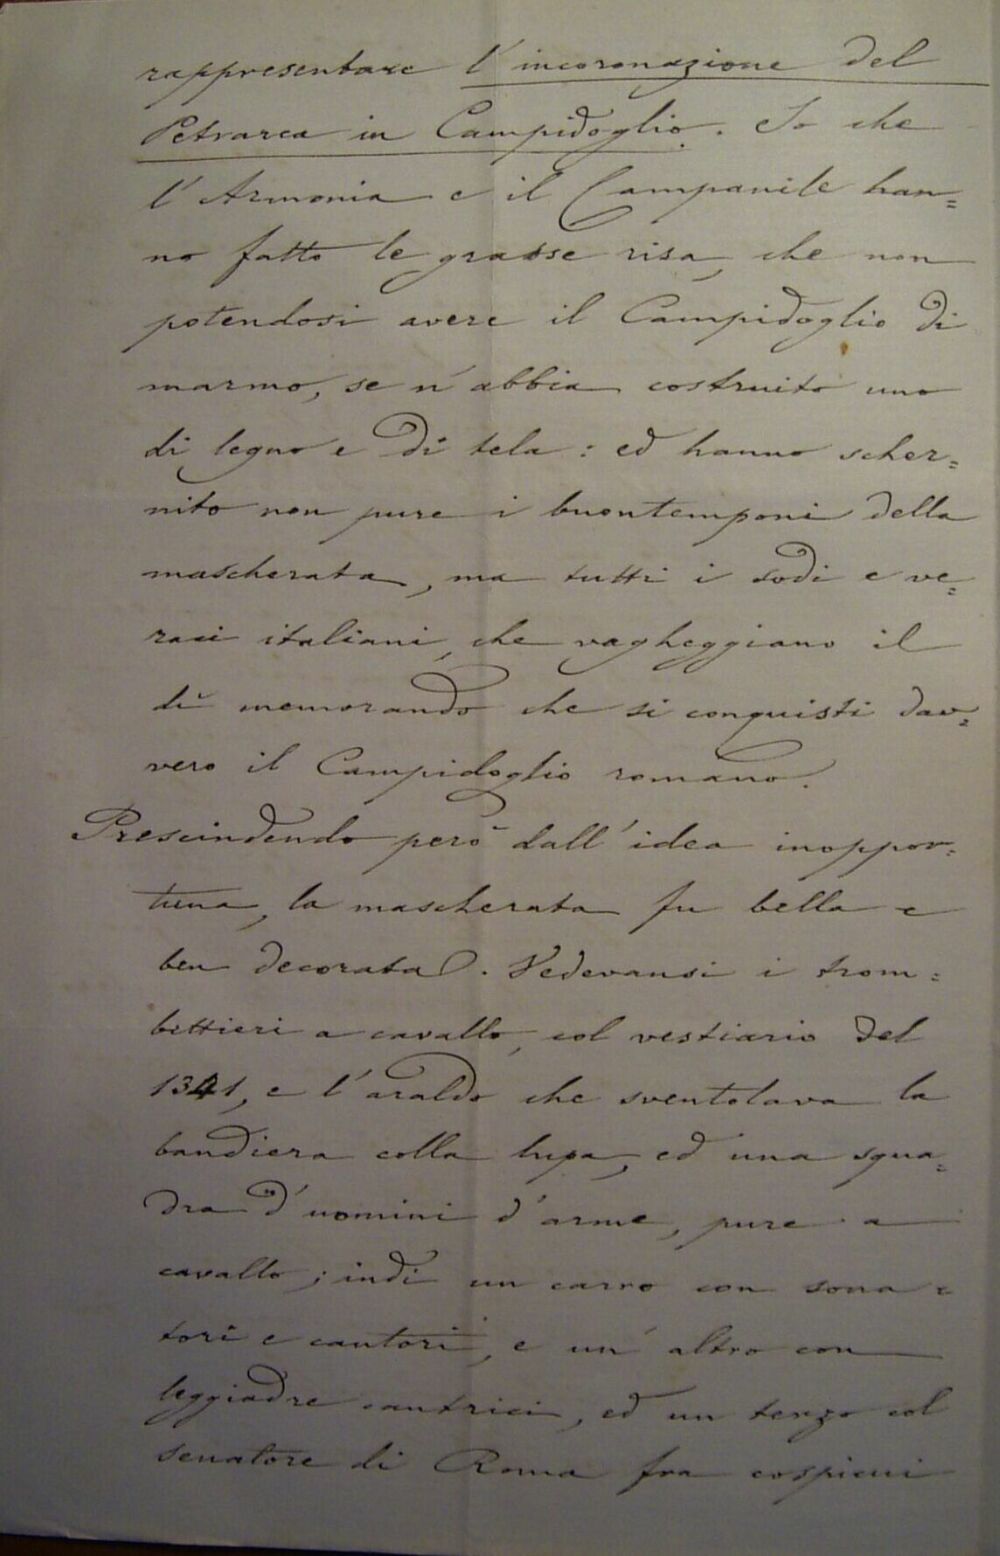 rappresentare l'incoronazione del
Petrarca in Campidoglio. So che
l'Armonia e il Campanile han=
no fatto le grasse risa, che non
potendosi avere il Campidoglio di
marmo, se n'abbia costruito uno
di legno e di tela: ed hanno scher=
nito non pure i buontemponi della
mascherata, ma tutti i sodi e ve=
raci italiani, che vagheggiano il
dì memorando che si conquisti dav=
vero il Campidoglio romano.
Prescindendo però dall'idea inoppor=
tuna, la mascherata fu bella e
ben decorata. Vedevansi i trom=
bettieri a cavallo, col vestiario del
1341, e l'araldo che sventolava la
bandiera colla lupa, ed una squa=
dra d'uomini d'arme, pure a
cavallo; indi un carro con sona=
tori e cantori, e un'altro con
leggiadre cantrici, ed un terzo col
senatore di Roma fra cospicui